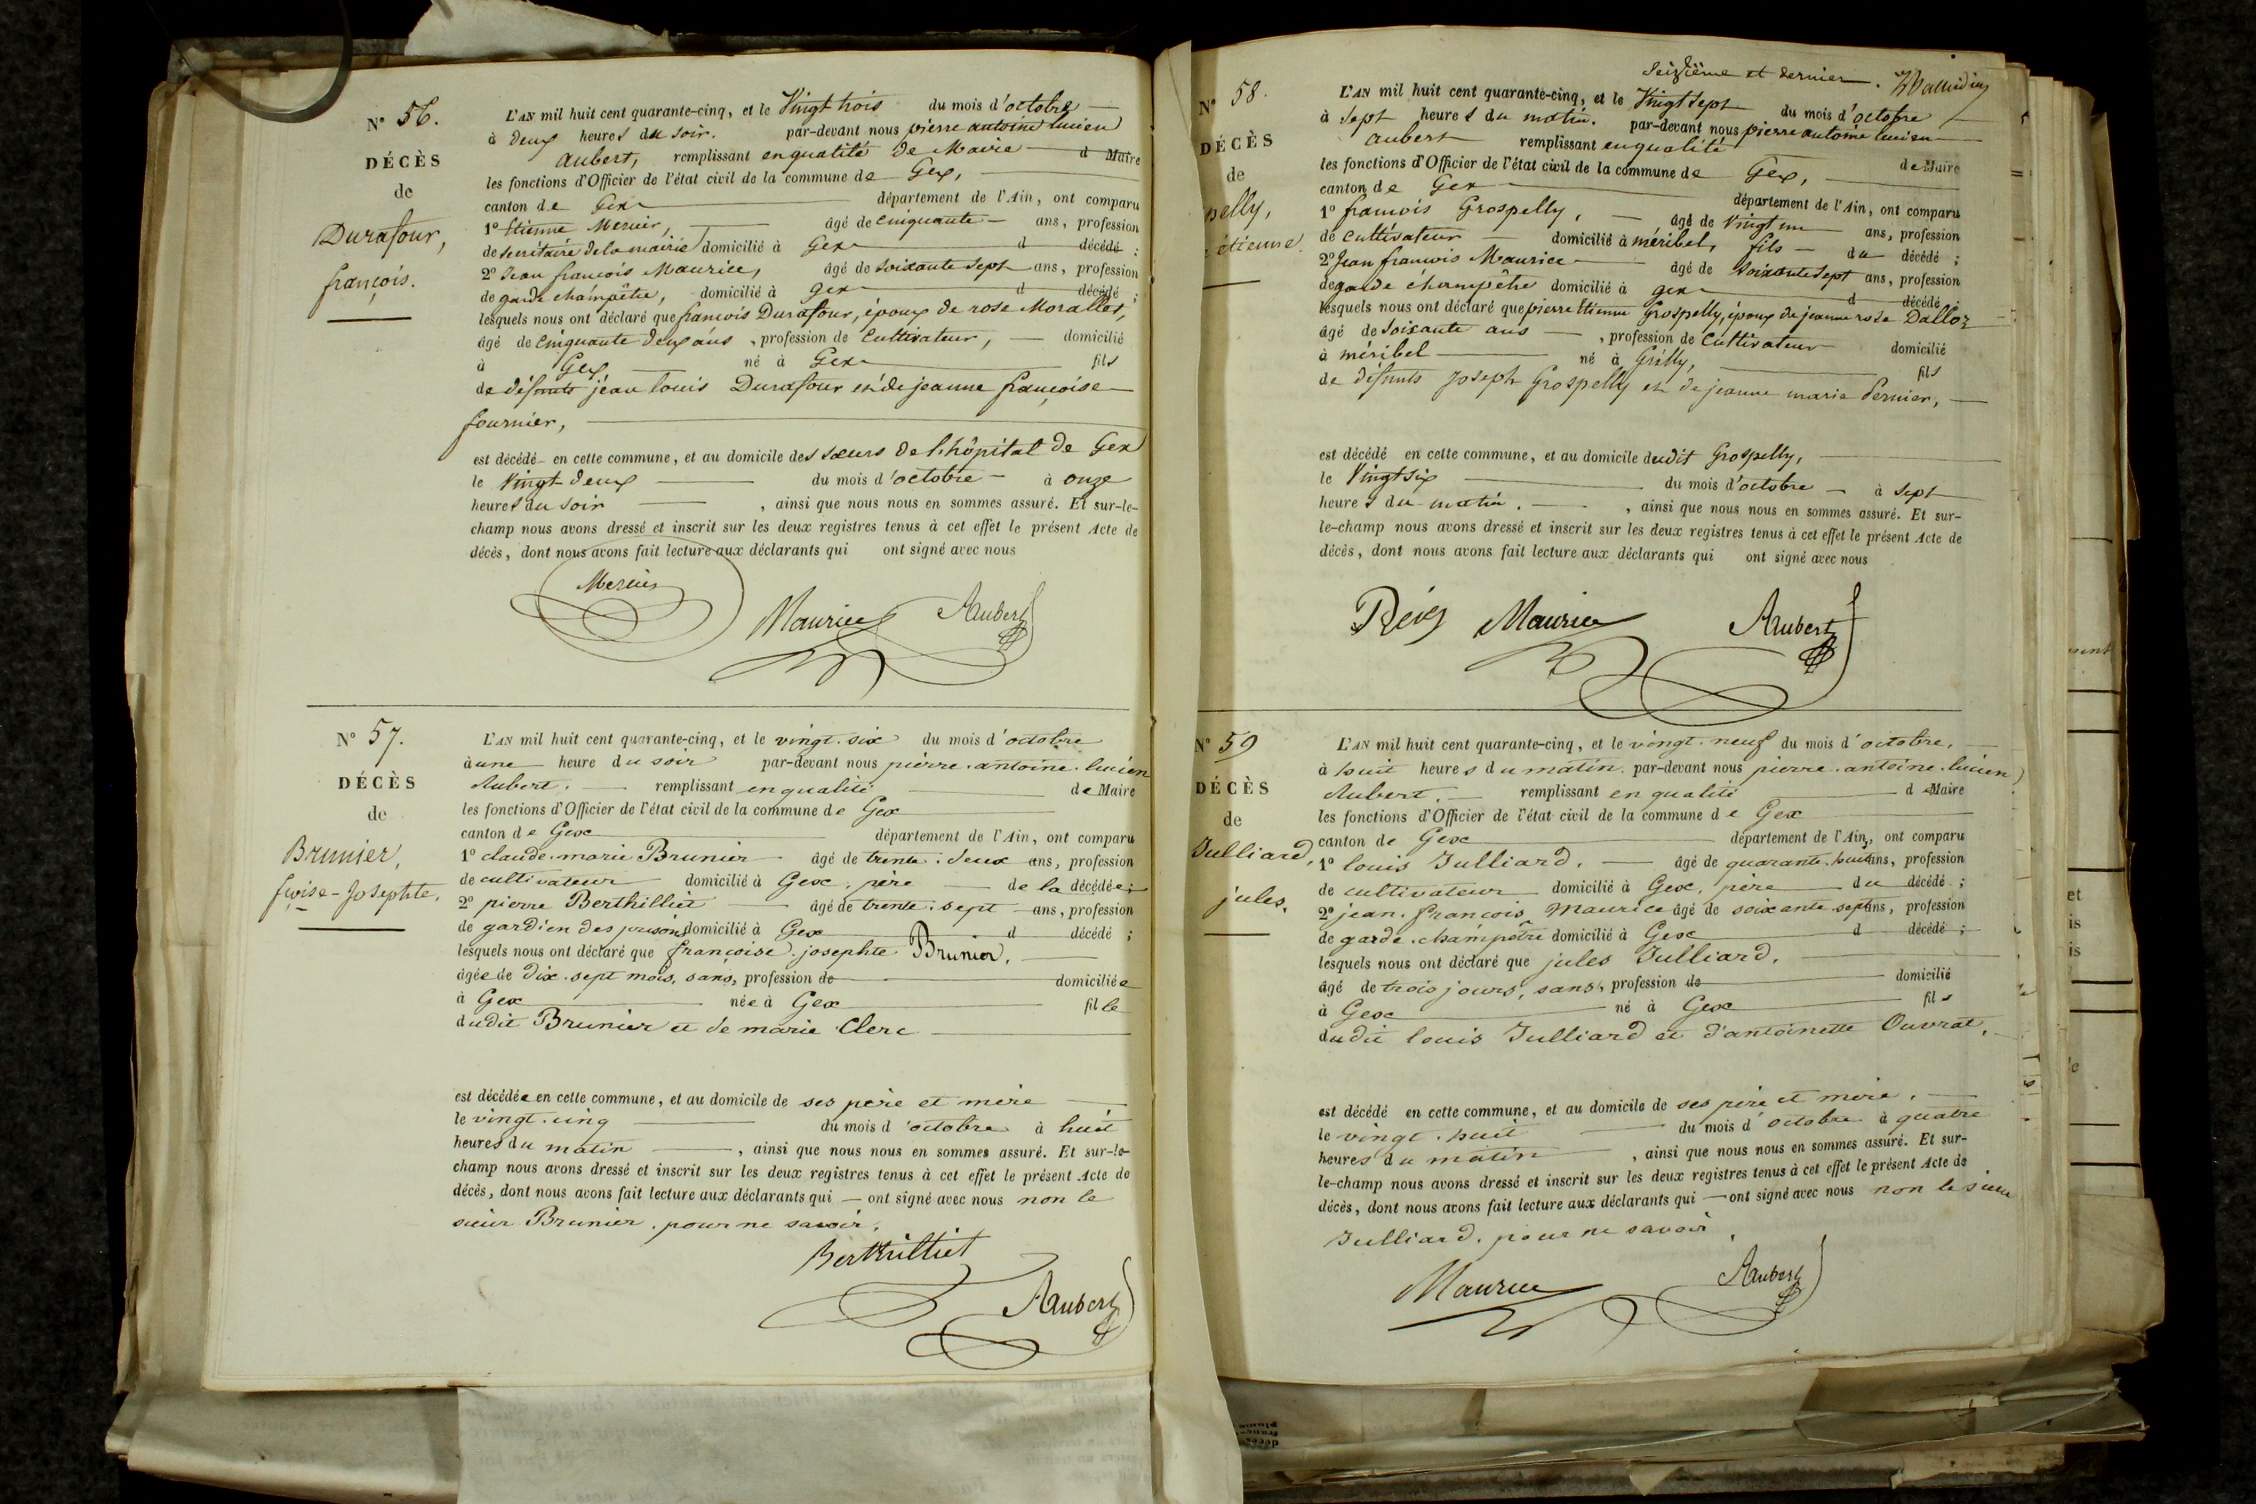 N° 56.
DÉCÈS
de
Durafour,
françois.
L'AN mil huit cent quarante-cinq, et le Vingt trois du mois d'octobre
à deux heures du soir. par-devant nous pierre antoine lucien
Aubert, remplissant en qualité de Maire d Maire
les fonctions d'Officier de l'état civil de la commune de Gex,
canton de Gex département de l'Ain, ont comparu
1° Etienne Mercier, âgé de cinquante ans, profession
de secrétaire de la mairie domicilié à Gex d décédé ;
2° Jean françois Maurice, âgé de soixante sept ans, profession
de garde champêtre, domicilié à Gex d décédé ;
lesquels nous ont déclaré que françois Durafour, époux de rose Morallet,
âgé de cinquante deux ans, profession de Cultivateur, domicilié
à Gex né à Gex fils
de défunts jean louis Durafour et de jeanne françoise
fournier,
est décédé en cette commune, et au domicile des sœurs de l'hôpital de Gex
le Vingt deux du mois d'octobre à onze
heures du soir , ainsi que nous nous en sommes assuré. Et sur-le-
champ nous avons dressé et inscrit sur les deux registres tenus à cet effet le présent Acte de
décès, dont nous avons fait lecture aux déclarants qui ont signé avec nous
Mercier
Maurice Aubert
N° 57.
DÉCÈS
de
Brunier,
fçoise-Josephte.
L'AN mil huit cent quarante-cinq, et le vingt-six du mois d'octobre
à une heure du soir par-devant nous pierre-antoine-lucien
Aubert. remplissant en qualité de Maire
les fonctions d'Officier de l'état civil de la commune de Gex
canton de Gex département de l'Ain, ont comparu
1° claude-marie Brunier âgé de trente-deux ans, profession
de cultivateur domicilié à Gex, père de la décédée ;
2° pierre Berthilliet âgé de trente-sept ans, profession
de gardien des prisons domicilié à Gex d décédé ;
lesquels nous ont déclaré que françoise-josephte Brunier,
âgée de dix-sept mois, sans, profession de domiciliée
à Gex née à Gex fille
dudit Brunier et de marie Clerc
est décédée en cette commune, et au domicile de ses père et mère
le vingt-cinq du mois d'octobre à huit
heures du matin , ainsi que nous nous en sommes assuré. Et sur-le-
champ nous avons dressé et inscrit sur les deux registres tenus à cet effet le présent Acte de
décès, dont nous avons fait lecture aux déclarants qui ont signé avec nous non le
sieur Brunier, pour ne savoir.
Berthilliet
Aubert
Seizième et dernier.
N° 58.
DÉCÈS
de
pelly,
étienne.
L'AN mil huit cent quarante-cinq, et le Vingt sept du mois d'octobre
à sept heures du matin. par-devant nous pierre antoine lucien
Aubert remplissant en qualité de Maire
les fonctions d'Officier de l'état civil de la commune de Gex,
canton de Gex département de l'Ain, ont comparu
1° françois Grospelly, âgé de Vingt un ans, profession
de cultivateur domicilié à méribel, fils du décédé ;
2° Jean francois Maurice âgé de soixante sept ans, profession
de garde champêtre domicilié à gex d décédé ;
lesquels nous ont déclaré que pierre Etienne Grospelly, époux de jeanne rose Dalloz
âgé de soixante ans , profession de cultivateur domicilié
à méribel né à Grilly, fils
de défunts Joseph Grospelly et de jeanne marie Pernier,
est décédé en cette commune, et au domicile dudit Grospelly,
le Vingt six du mois d'octobre à sept
heures du matin. , ainsi que nous nous en sommes assuré. Et sur-
le-champ nous avons dressé et inscrit sur les deux registres tenus à cet effet le présent Acte de
décès, dont nous avons fait lecture aux déclarants qui ont signé avec nous
Maurice Aubert
N° 59
DÉCÈS
de
Julliard,
jules.
L'AN mil huit cent quarante-cinq, et le vingt-neuf du mois d'octobre,
à huit heures du matin par-devant nous pierre-antoine-lucien
Aubert. remplissant en qualité de Maire
les fonctions d'Officier de l'état civil de la commune de Gex
canton de Gex département de l'Ain, ont comparu
1° louis Julliard, âgé de quarante-huit ans, profession
de cultivateur domicilié à Gex, père du décédé ;
2° jean-françois Maurice âgé de soixante-sept ans, profession
de garde-champêtre domicilié à Gex d décédé ;
lesquels nous ont déclaré que jules Julliard,
âgé de trois jours, sans, profession de domicilié
à Gex né à Gex fils
dudit louis Julliard et d'antoinette Ouvrat,
est décédé en cette commune, et au domicile de ses père et mère,
le vingt-huit du mois d'octobre à quatre
heures du matin , ainsi que nous nous en sommes assuré. Et sur-
le-champ nous avons dressé et inscrit sur les deux registres tenus à cet effet le présent Acte de
décès, dont nous avons fait lecture aux déclarants qui ont signé avec nous non le sieur
Julliard, pour ne savoir
Maurice Aubert